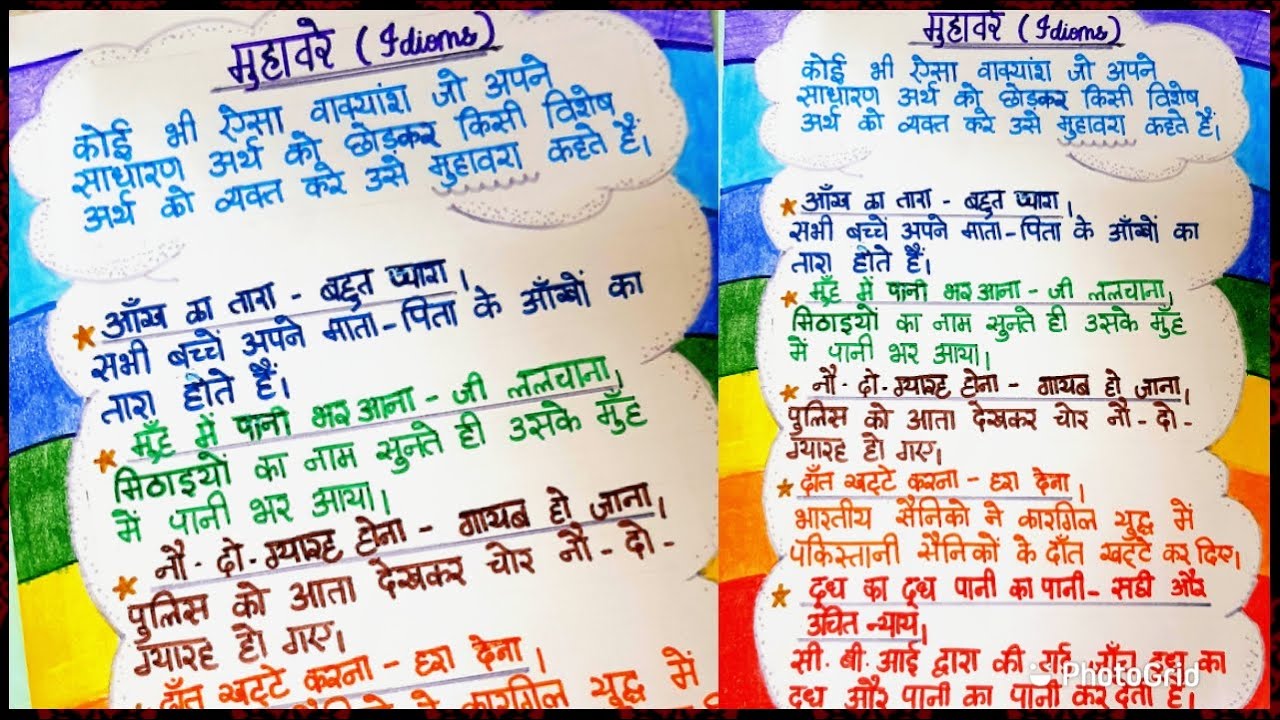 मुहावरे (Idioms)
कोई भी ऐसा वाक्यांश जो अपने
साधारण अर्थ को छोड़कर किसी विशेष
अर्थ को व्यक्त करे उसे मुहावरा कहते हैं।
आँख का तारा - बहुत प्यारा।
सभी बच्चें अपने माता-पिता के आँखों का
तारा होते हैं।
मुँह में पानी भर आना - जी ललचाना।
मिठाइयों का नाम सुनते ही उसके मुँह
में पानी भर आया।
नौ-दो-ग्यारह होना - गायब हो जाना।
पुलिस को आता देखकर चोर नौ-दो-
ग्यारह हो गए।
दाँत खट्टे करना - हरा देना।
ने कारगिल युद्ध में
मुहावरे (Idioms)
कोई भी ऐसा वाक्यांश जो अपने
साधारण अर्थ को छोड़कर किसी विशेष
अर्थ को व्यक्त करे उसे मुहावरा कहते हैं।
आँख का तारा - बहुत प्यारा।
सभी बच्चें अपने माता-पिता के आँखों का
तारा होते हैं।
मुँह में पानी भर आना - जी ललचाना।
मिठाइयों का नाम सुनते ही उसके मुँह
में पानी भर आया।
नौ-दो-ग्यारह होना - गायब हो जाना।
पुलिस को आता देखकर चोर नौ-दो-
ग्यारह हो गए।
दाँत खट्टे करना - हरा देना।
भारतीय सैनिको ने कारगिल युद्ध में
पकिस्तानी सैनिकों के दाँत खट्टे कर दिए।
दूध का दूध पानी का पानी- सही और
उचित न्याय।
सी. बी. आई द्वारा की गई जाँच दूध का
दूध और पानी का पानी कर देता है।
PhotoGrid